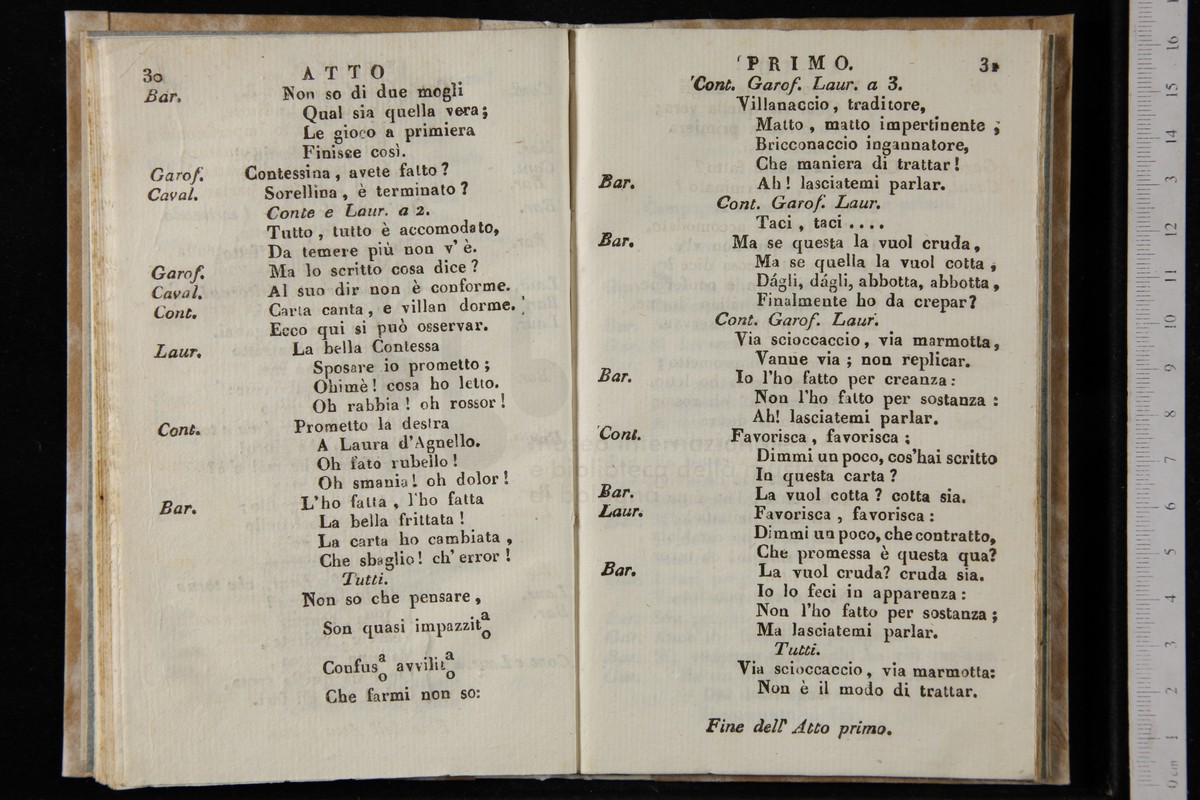 30 ATTO
Bar. Non so di due mogli
Qual sia quella vera;
Le gioco a primiera
Finisce così.
Garof. Contessina, avete fatto?
Caval. Sorellina, è terminato?
Conte e Laur. a 2.
Tutto, tutto è accomodato,
Da temere più non v' è.
Garof. Ma lo scritto cosa dice?
Caval. Al suo dir non è conforme.
Cont. Carta canta, e villan dorme.
Ecco qui si può osservar.
Laur. La bella Contessa
Sposare io prometto;
Ohimè! cosa ho letto.
Oh rabbia! oh rossor!
Cont. Prometto la destra
A Laura d'Agnello.
Oh fato rubello!
Oh smania! oh dolor!
Bar. L'ho fatta, l'ho fatta
La bella frittata!
La carta ho cambiata,
Che sbaglio! ch' error!
Tutti.
Non so che pensare,
Son quasi impazzit a o
Confus a o avvilit a o
Che farmi non so:
PRIMO. 31
Cont. Garof. Laur. a 3.
Villanaccio, traditore,
Matto, matto impertinente;
Bricconaccio ingannatore,
Che maniera di trattar!
Bar. Ah! lasciatemi parlar.
Cont. Garof. Laur.
Taci, taci ....
Bar. Ma se questa la vuol cruda,
Ma se quella la vuol cotta,
Dágli, dágli, abbotta, abbotta,
Finalmente ho da crepar?
Cont. Garof. Laur.
Via scioccaccio, via marmotta,
Vanne via; non replicar.
Bar. Io l'ho fatto per creanza:
Non l'ho fatto per sostanza:
Ah! lasciatemi parlar.
Cont. Favorisca, favorisca;
Dimmi un poco, cos'hai scritto
In questa carta?
Bar. La vuol cotta? cotta sia.
Laur. Favorisca, favorisca:
Dimmi un poco, che contratto,
Che promessa è questa qua?
Bar. La vuol cruda? cruda sia.
Io lo feci in apparenza:
Non l'ho fatto per sostanza;
Ma lasciatemi parlar.
Tutti.
Via scioccaccio, via marmotta:
Non è il modo di trattar.
Fine dell' Atto primo.